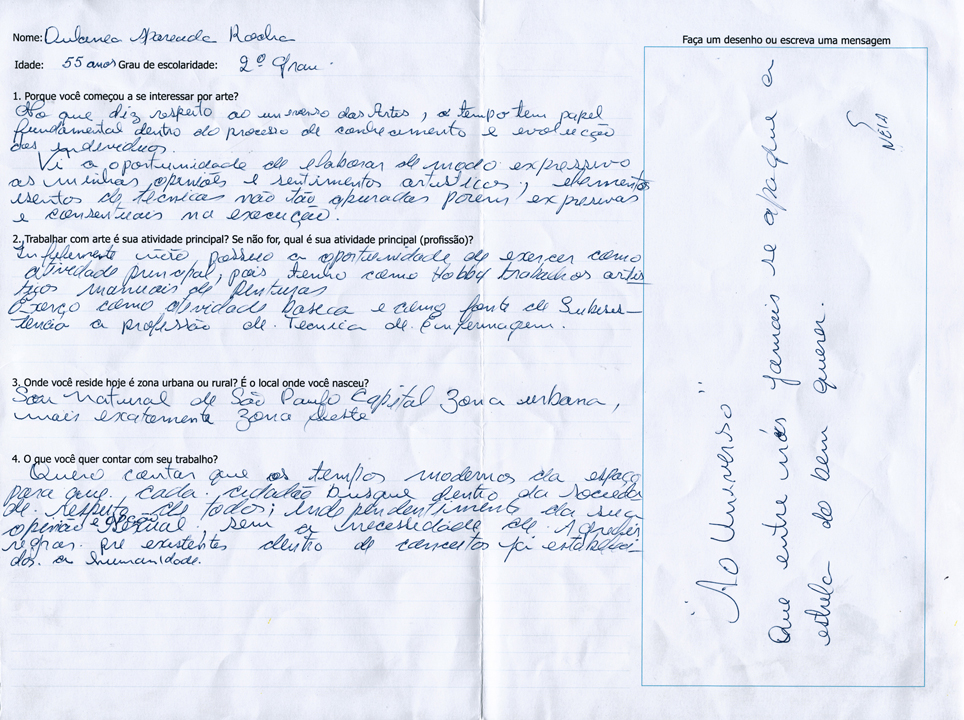 Nome: Aparecida Rocha
Idade: 55 anos Grau de escolaridade: 2º Grau.
1. Porque você começou a se interessar por arte?
No que diz respeito ao universo das Artes, o tempo tem papel
fundamental dentro do processo de conhecimento e evolução
dos indivíduos.
Vi a oportunidade de elaborar de modo expressivo
as minhas opiniões e sentimentos artísticos, elementos
isentos de técnicas não tão apuradas porém expressivas
e consensuais na execução.
2. Trabalhar com arte é sua atividade principal? Se não for, qual é sua atividade principal (profissão)?
Infelizmente não possuo a oportunidade de exercer como
atividade principal, pois tenho como Hobby trabalhos artís
ticos manuais de Pinturas
Exerço como atividade basica e como fonte de Subsis-
tência a profissão de Tecnica de Enfermagem.
3. Onde você reside hoje é zona urbana ou rural? É o local onde você nasceu?
Sou natural de São Paulo Capital zona urbana,
mais exatamente zona Leste
4. O que você quer contar com seu trabalho?
Quero contar que os tempos modernos da espaço
para que cada cidadão busque dentro da socieda
de respeito de todos; independentimente da sua
opinião e sexual sem a necessidade de Agredir
regras pré existentes dentro de conceitos já estabeleci-
dos a humanidade.
Faça um desenho ou escreva uma mensagem
"Ao Universo"
Que entre nós jamais se apague a
estrela do bem querer.
NEIA